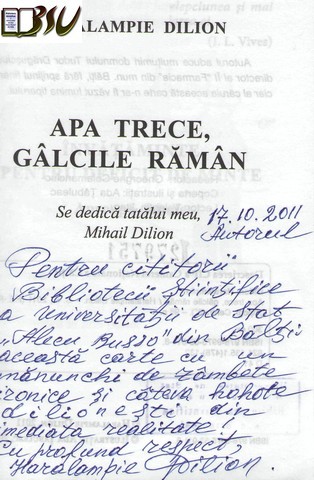 BSU
ALAMPIE DILION
APA TRECE,
GÂLCILE RĂMÂN
Se dedică tatălui meu,
Mihail Dilion
17.10.2011
Autorul
Pentru cititorii
Bibliotecii Științifice
a Universității de Stat
„Alecu Russo" din Bălți
această carte cu un
mănunchi de zâmbete
ironice și câteva hohote
dilionești din
imediata realitate!
Cu profund respect,
Haralampie Dilion.